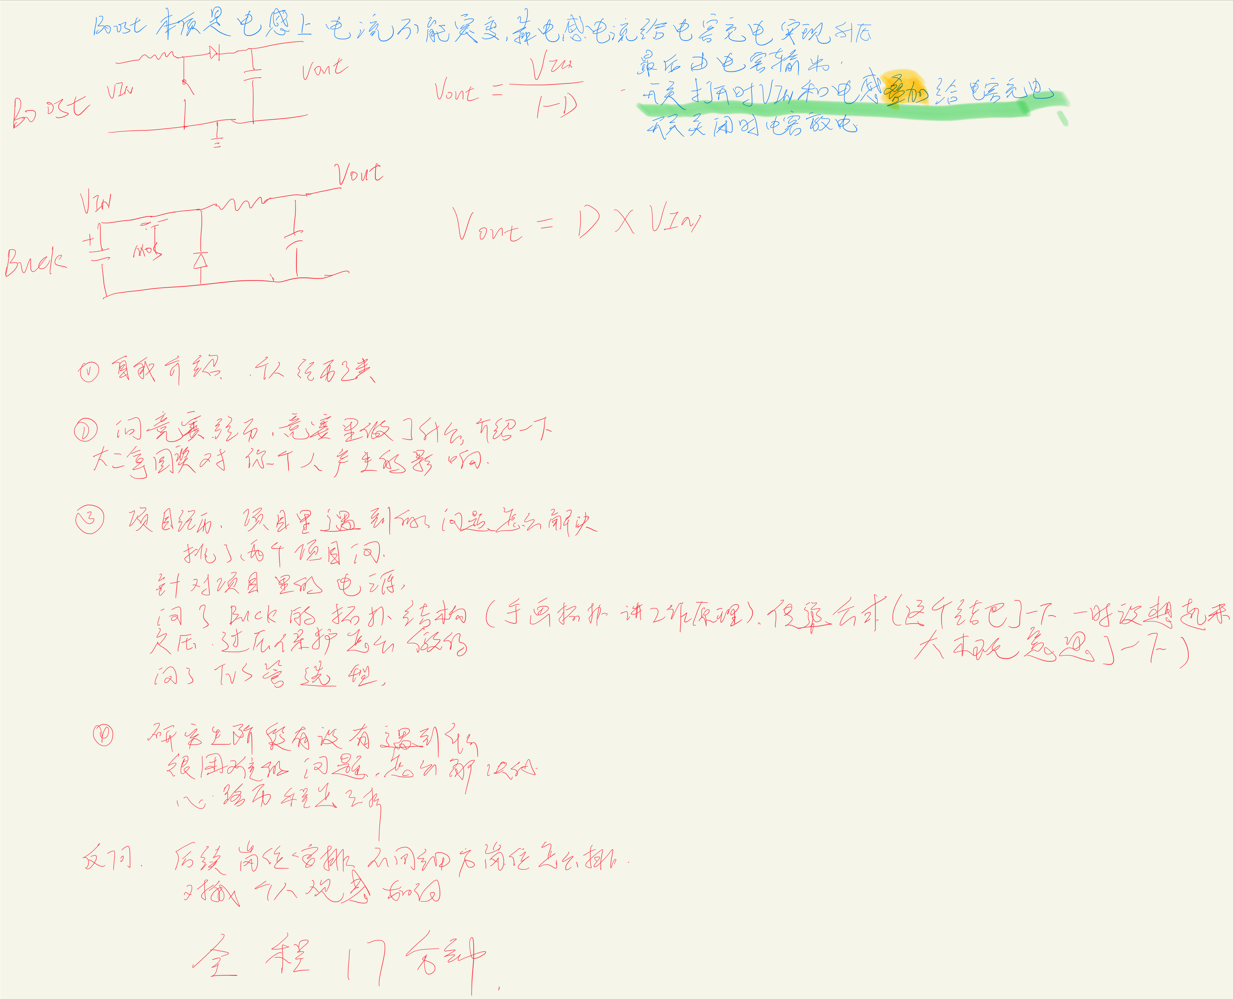 Boost 本质是电感上电流不能突变,靠电感电流给电容充电实现升压
最后由电容输出.
开关打开时VIN和电感叠加给电容充电
开关关闭时电容放电
Boost
VIN
Vout
Vout = VIN / 1-D
Buck
VIN
+
MOS
Vout
Vout = D × VIN
① 自我介绍. 个人经历之类
② 问竞赛经历.竞赛里做了什么,介绍一下
大二拿国奖对你个人产生的影响.
③ 项目经历. 项目里遇到的问题怎么解决
挑了两个项目问.
针对项目里的电源,
问了Buck的拓扑结构(手画拓扑 讲工作原理).
公式(这个结巴了一下 一时没想起来
大概意思了一下)
欠压.过压保护怎么做的
问了TVS管选型.
④ 研究生阶段有没有遇到的
很困难的问题.怎么解决的
心路历程怎么样
反问. 后续岗位安排,不同细分岗位怎么排.
对我个人观感如何
全程17分钟.